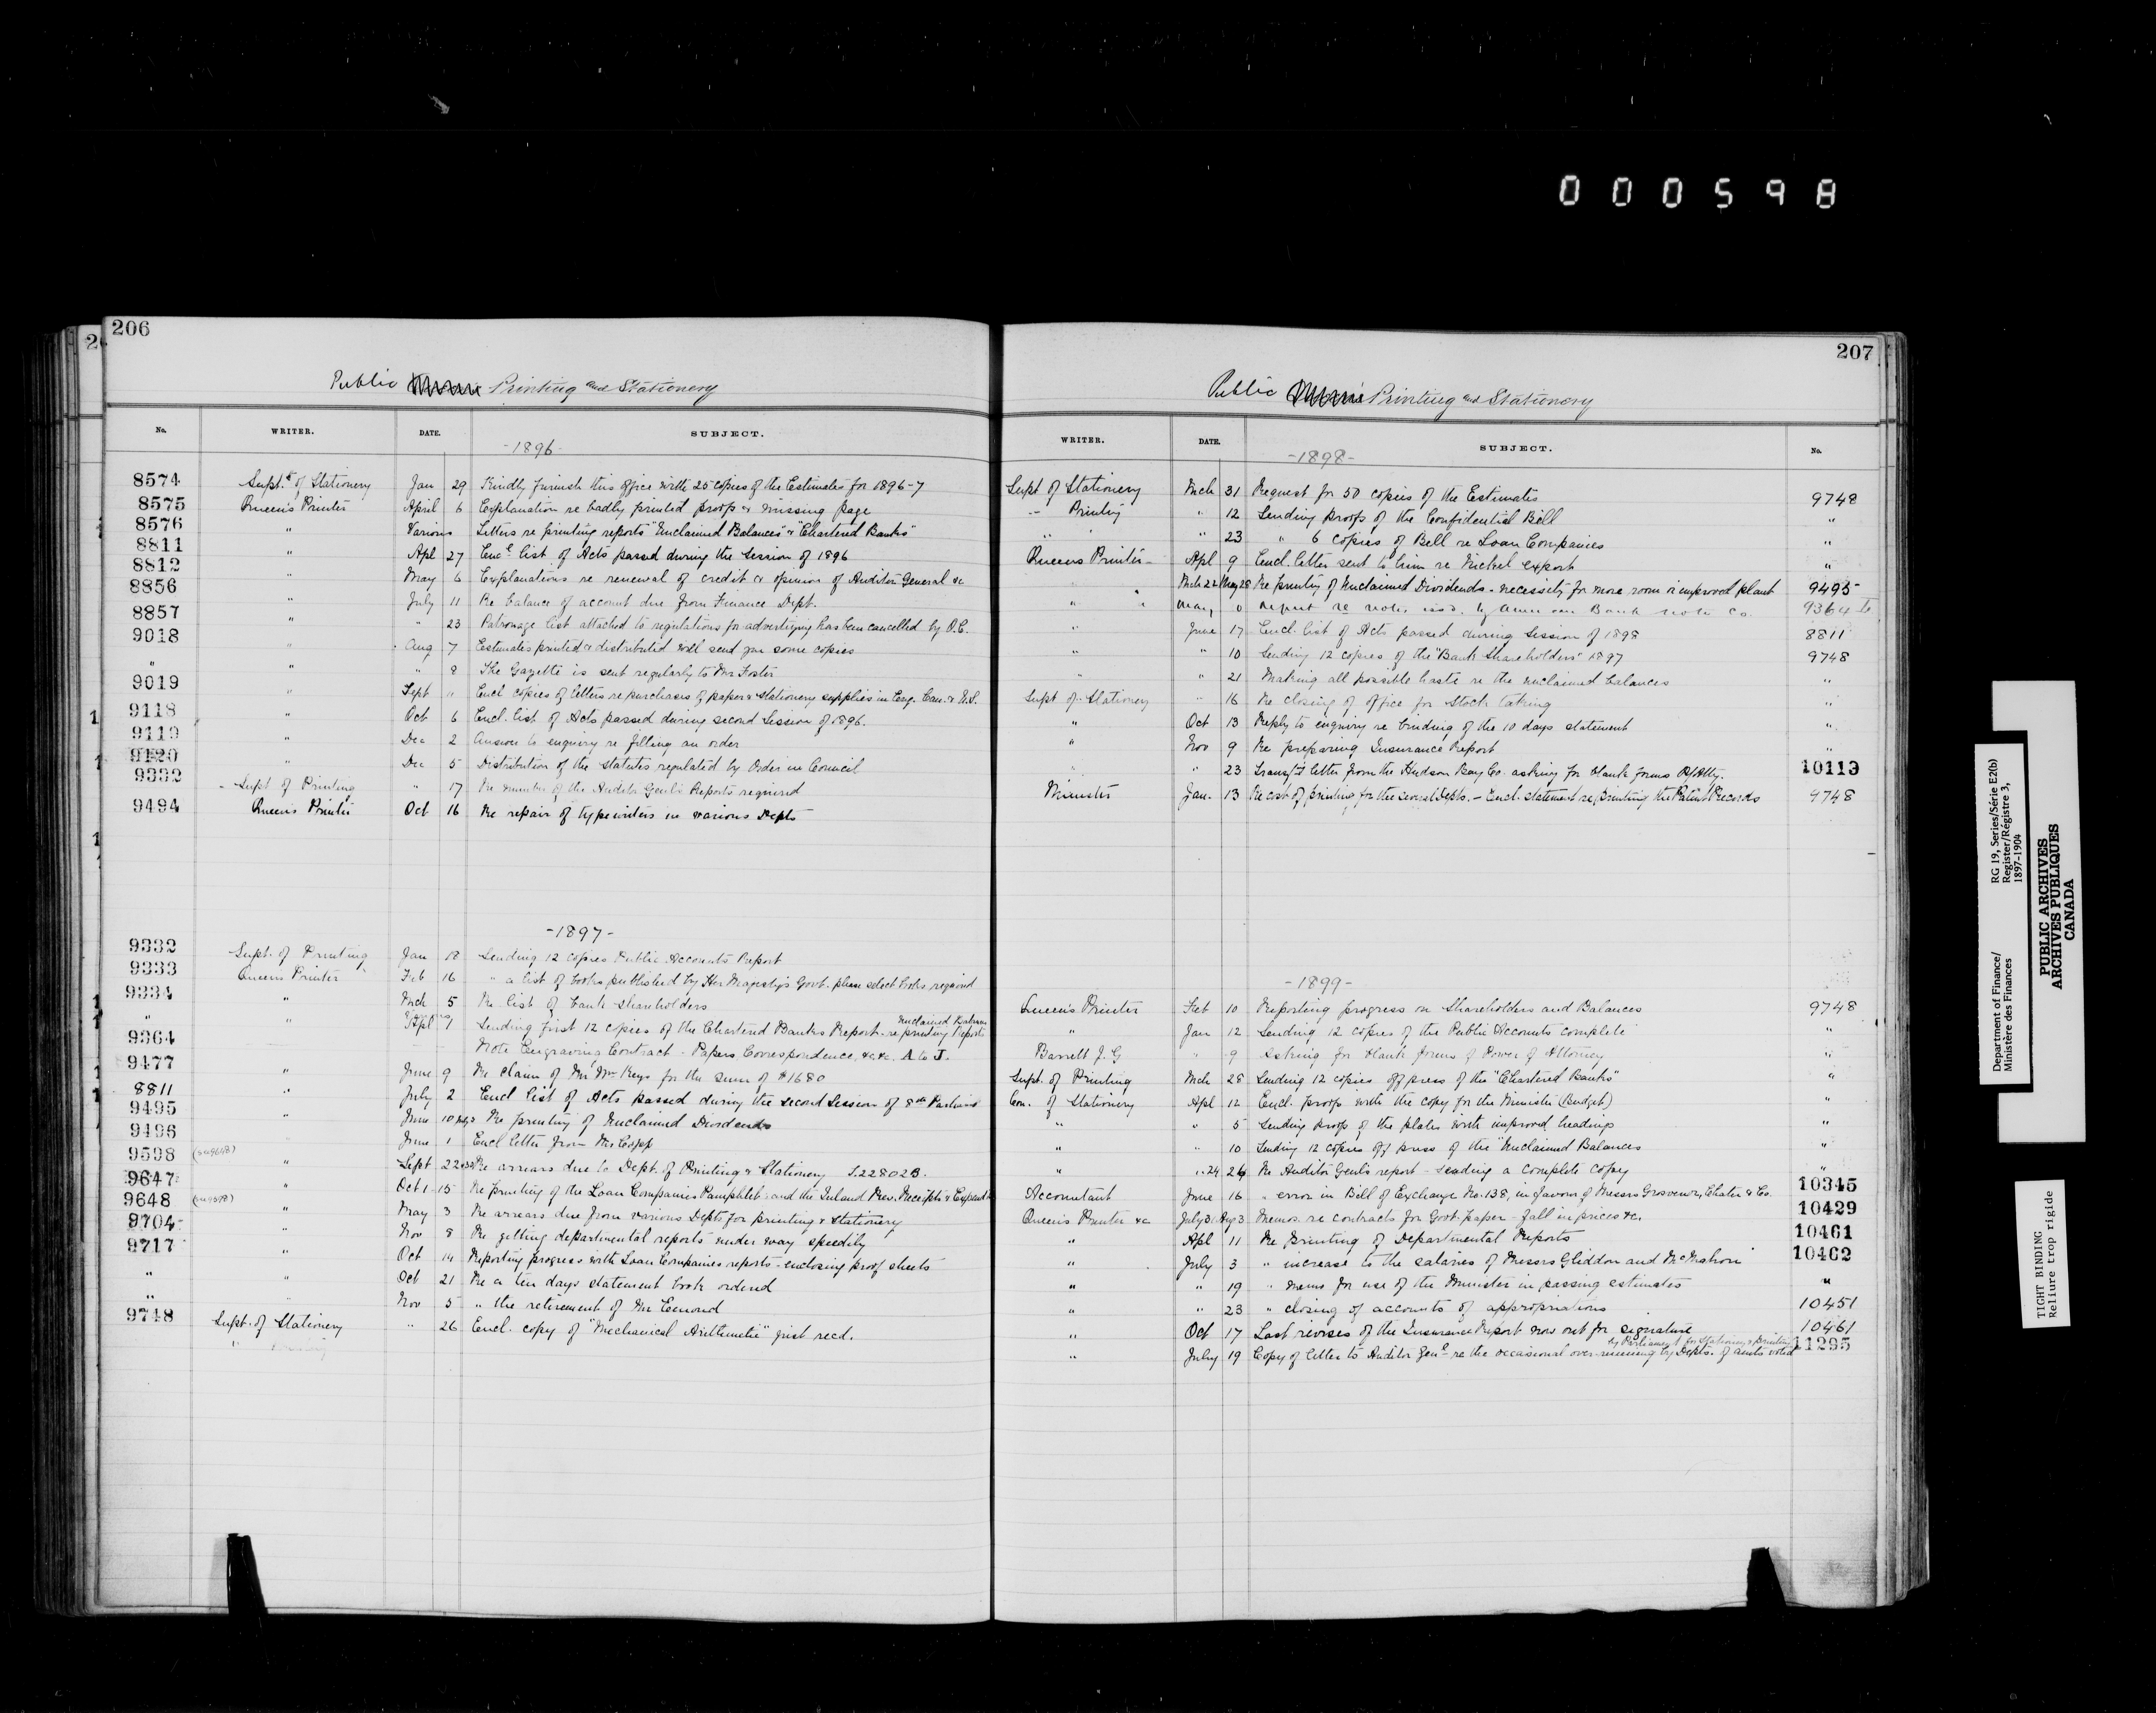 000598
206
Public Printing and Stationery
No. WRITER. DATE. SUBJECT.
-1896-
8574 Supt. of Stationery Jan 29 Kindly furnish this office with 25 copies of the Estimates for 1896-7
8575 Queen's Printer April 6 Explanation re badly printed proofs & missing page
8576 " Various Letters re printing reports "Unclaimed Balances" & "Chartered Banks"
8811 " Apl 27 Encl. list of Acts passed during the Session of 1896
8812 " May 6 Explanations re renewal of credit & opinion of Auditor General &c
8856 " July 11 Re balance of account due from Finance Dept.
8857 " " 23 Patronage list attached to regulations for advertising has been cancelled by O.C.
9018 " Aug 7 Estimates printed & distributed will send you some copies
" " " 8 The Gazette is sent regularly to Mr Foster
9019 " Sept " Encl copies of letters re purchases of paper & stationery supplies in Eng. Can. & U.S.
9118 " Oct 6 Encl. list of Acts passed during second Session of 1896.
9119 " Dec 2 Answer to enquiry re filling an order
9120 " Dec 5 Distribution of the Statutes regulated by Order in Council
9332 Supt of Printing " 17 Re number of the Auditor Genl's Reports required
9494 Queen's Printer Oct 16 Re repair of typewriters in various Depts
-1897-
9332 Supt. of Printing Jan 18 Sending 12 copies Public Accounts Report
9333 Queen's Printer Feb 16 " a list of books published by Her Majesty's Govt. please select books required
9334 " Mch 5 Re list of bank shareholders
" " Apl 1 Sending first 12 copies of the Chartered Banks Report - re printing Unclaimed Balances Reports
9364 Note Engraving Contract - Papers Correspondence, &c &c. A to J.
9477 " June 9 Re claim of Mr Wm Keys for the sum of $1680
8811 " July 2 Encl list of Acts passed during the second Session of 8th Parliamt
9495 " June 10 Re printing of Unclaimed Dividends
9496 June 1 Encl letter from Mr Copp
9598 (see 9648) " Sept 22 Re arrears due to Dept. of Printing & Stationery S.22802B.
9647 " Oct 1-15 Re printing of the Loan Companies Pamphlet and the Inland Rev. Receipts &
9648 (see 9598) " May 3 Re arrears due from various Depts for printing & stationery
9704 " Nov 8 Re getting departmental reports under way speedily
9717 " Oct 14 Reporting progress with Loan Companies reports - enclosing proof sheets
" " Oct 21 Re a ten days statement book ordered
" " Nov 5 " the retirement of Mr
9748 Supt. of Stationery " 26 Encl. copy of "Mechanical Arithmetic" just recd.
207
Public Printing and Stationery
WRITER. DATE. SUBJECT. No.
-1898-
Supt of Stationery Mch 31 Request for 50 copies of the Estimates 9748
" Printing " 12 Sending proofs of the Confidential Bill "
" " " 23 " 6 copies of Bill re Loan Companies "
Queen's Printer Apl 9 Encl. letter sent to him re Nickel export "
" Mch 22 May 28 Re printing of Unclaimed Dividends - necessity for more room & improved plant 9495
" " May Report re notes issd. by American Bank Note Co. 9364
" June 17 Encl. list of Acts passed during Session of 1898 8811
" " 10 Sending 12 copies of the "Bank Shareholders" 1897 9748
" " 21 Making all possible haste re the unclaimed balances "
Supt of Stationery " 16 Re closing of office for Stock taking "
" Oct 13 Reply to enquiry re binding of the 10 days statement "
" Nov 9 Re preparing Insurance Report "
" " 23 Transf'd letter from the Hudson Bay Co. asking for blank forms P/Atty. 10119
Minister Jan. 13 Re cost of printing for the several Depts. - Encl. statement re printing the Patent Records 9748
-1899-
Queen's Printer Feb 10 Reporting progress on Shareholders and Balances 9748
" Jan 12 Sending 12 copies of the Public Accounts complete "
Barrett J. G " 9 Asking for blank forms of Power of Attorney "
Supt. of Printing Mch 28 Sending 12 copies off press of the "Chartered Banks" "
of Stationery Apl 12 Encl. proofs with the copy for the Minister (Budget) "
" " 5 Sending proofs of the plates with improved headings "
" " 10 Sending 12 copies off press of the "Unclaimed Balances "
" " 24 26 Re Auditor Genl's report - sending a complete copy "
Accountant June 16 " error in Bill of Exchange No. 138, in favour of Messrs Grosvenor, Chater & Co. 10345
Queen's Printer &c July 31 Aug 3 Memos. re contracts for Govt. paper - fall in prices &c. 10429
" Apl 11 Re printing of Departmental Reports 10461
" July 3 " increase to the salaries of Messrs Gliddon and McMahon 10462
" " 19 " memo for use of the Minister in passing estimates "
" " 23 " closing of accounts of appropriations 10451
" Oct 17 Last revises of the Insurance Report now out for signature 10461
" July 19 Copy of letter to Auditor Genl re the occasional over-running by Depts. of amts voted by Parliament for Stationery & printing 11295
Department of Finance/
Ministère des Finances
RG 19, Series/Série E2(b)
Register/Régistre 3,
1897-1904
PUBLIC ARCHIVES
ARCHIVES PUBLIQUES
CANADA
TIGHT BINDING
Reliure trop rigide